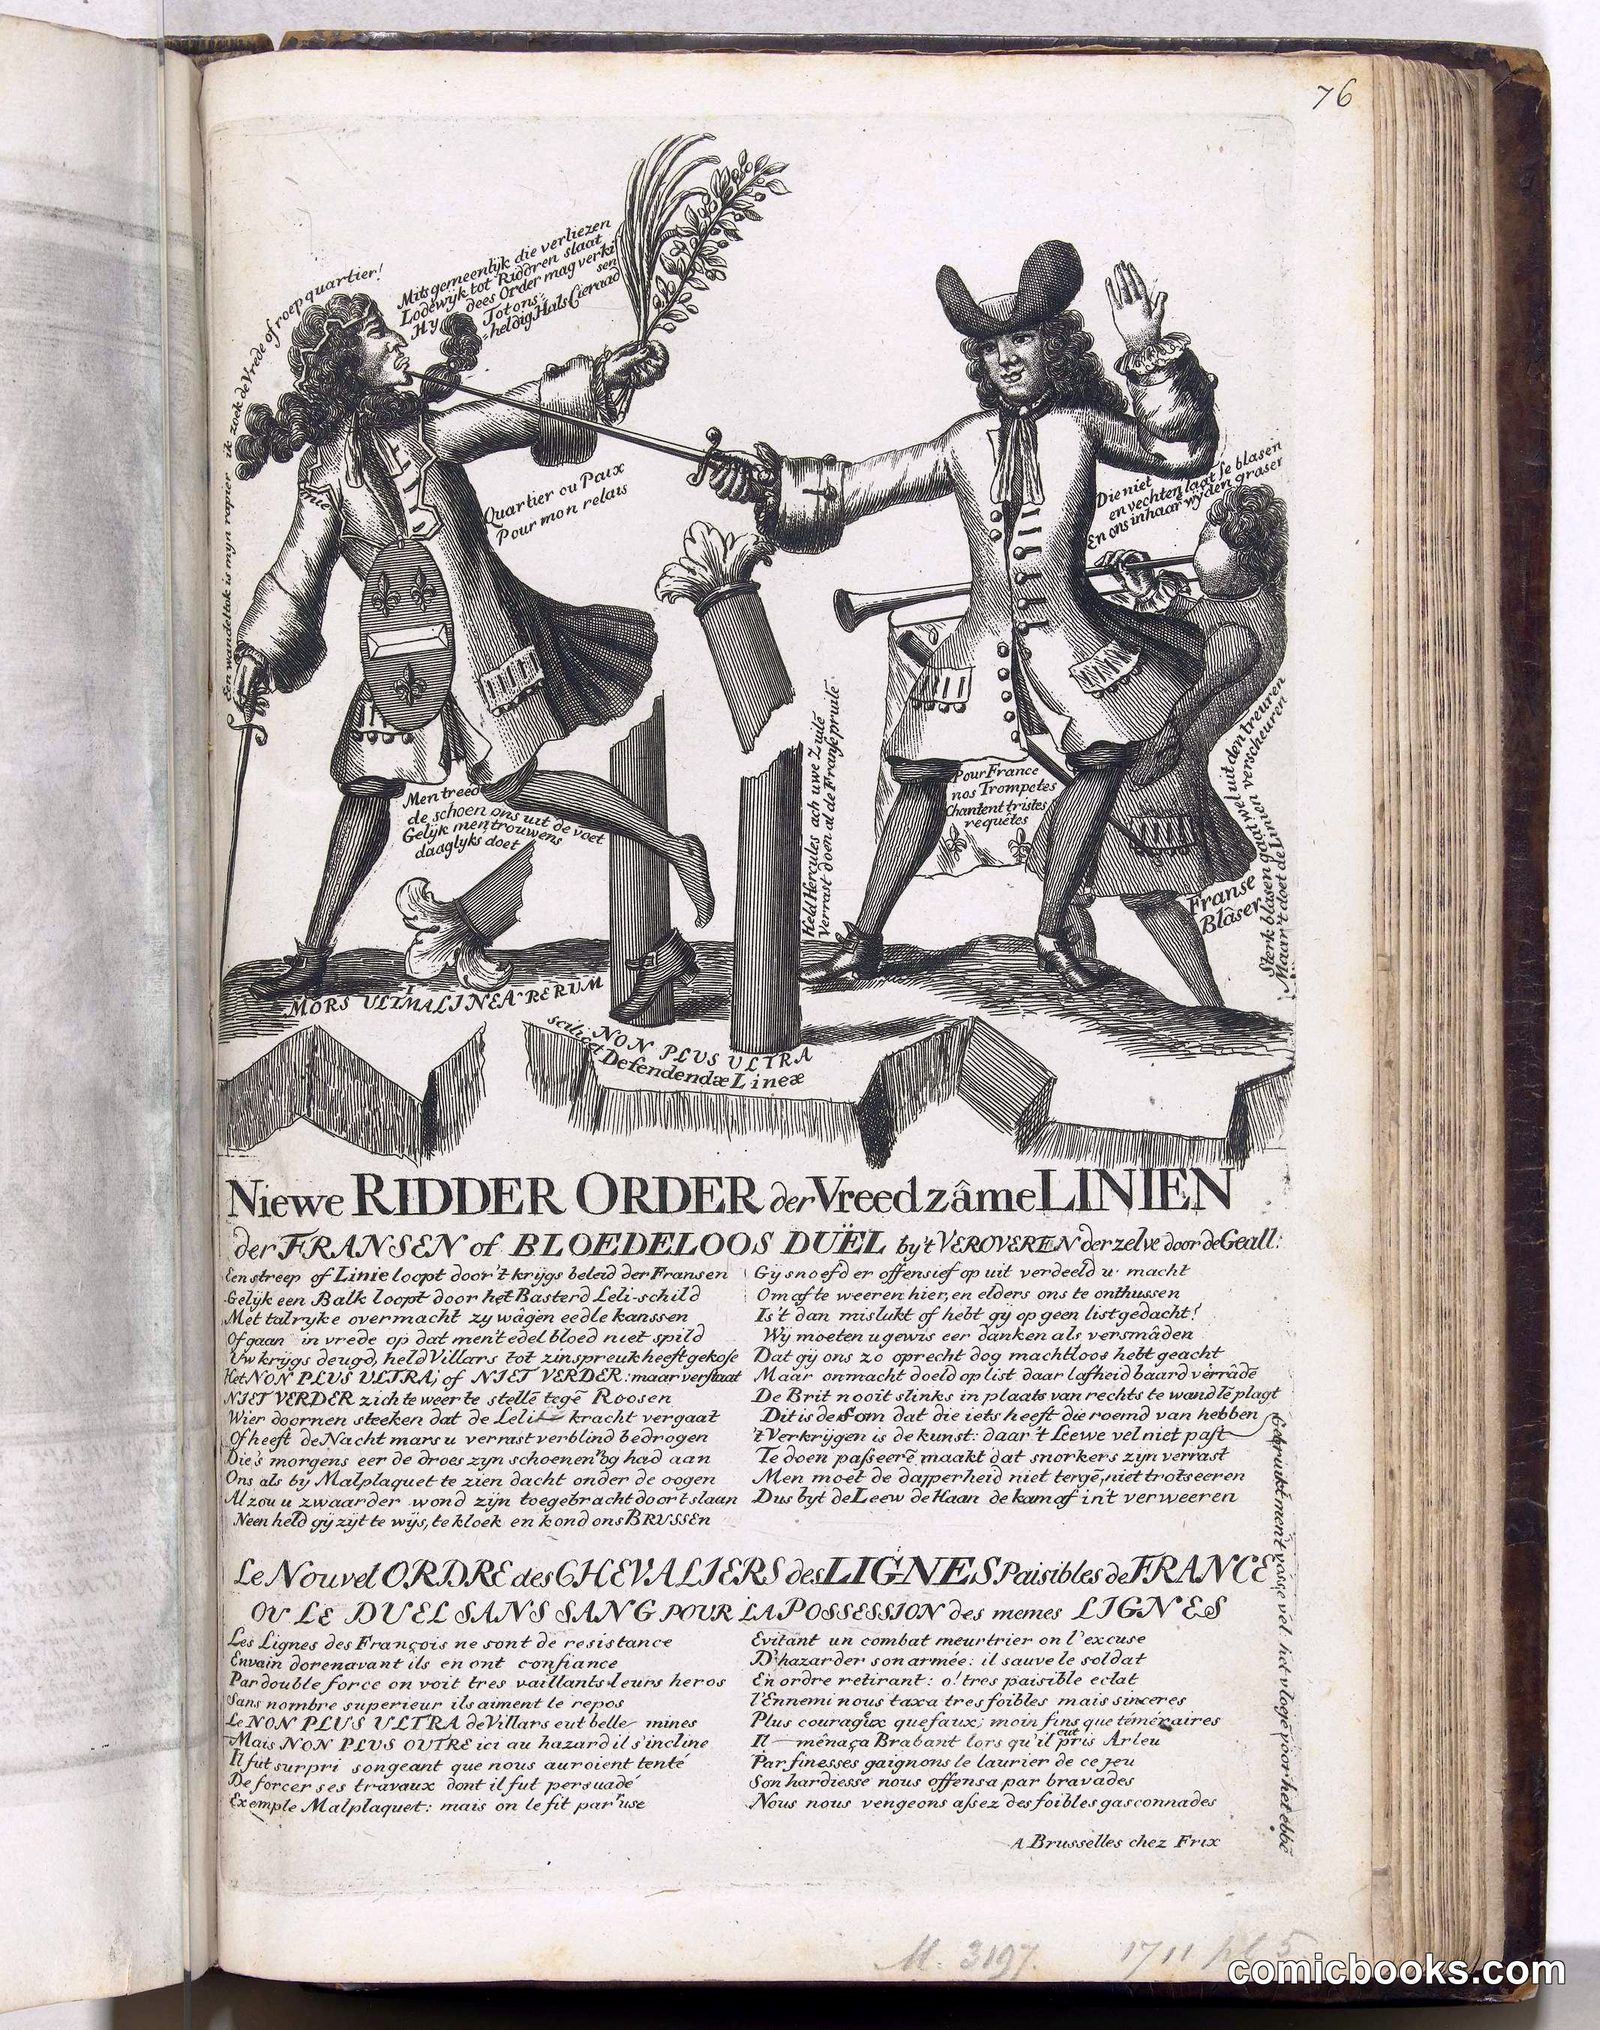 76
Een wandelstok is myn rapier ik zoek de Vrede of roep quartier!
Mits gemeenlijk die verliezen
Lodewijk tot Riddren slaat
Hy dees Order mag verki
sen
Tot ons
=heldig Hals Cieraad
Quartier ou Paix
Pour mon relais
Die niet
en vechten laat se blasen
En ons inhaar wyden graser
Men treed
de schoen ons uit de voet
Gelijk men trouwens
daaglyks doet
Held Hercules ach uwe Zuilē
Verrast doen al de Franse pruilē
Pour France
nos Trompetes
Chantent tristes
requêtes
Franse
Blaser
Sterk blasen gaat wel uit den treuren
Maar 't doet de Linien verscheuren
MORS ULTIMA LINEA RERUM
scilicet
NON PLUS ULTRA
Defendendæ Lineæ
Niewe RIDDER ORDER der Vreedzâme LINIEN
der FRANSEN of BLOEDELOOS DUËL by't VEROVEREN der zelve door de Geall:
Een streep of Linie loopt door 't krijgs beleid der Fransen
Gelijk een Balk loopt door het Basterd Leli-schild
Mét talryke overmacht zy wâgen eedle kanssen
Of gaan in vrede op dat men't edel bloed niet spild
Uw krijgs deugd, held Villars tot zinspreuk heeft gekose
Het NON PLUS ULTRA; of NIET VERDER: maar verstaat
NIET VERDER zich te weer te stellē tegē Roosen
Wier doornen steeken dat de Leli kracht vergaat
Of heeft de Nacht mars u verrast verblind bedrogen
Die's morgens eer de droes zyn schoenen nog had aan
Ons als bij Malplaquet te zien dacht onder de oogen
Al zou u zwaarder wond zijn toegebracht door t slaan
Neen held gij zijt te wijs, te kloek en kond ons BRUSSEN
Gij snoefd er offensief op uit verdeeld u macht
Om af te weeren hier, en elders ons te onthussen
Is't dan mislukt of hebt gij op geen list gedacht!
Wij moeten u gewis eer danken als versmâden
Dat gij ons zo oprecht dog machtloos hebt geacht
Maar onmacht doeld op list daar lafheid baard vêrrâdē
De Brit nooit slinks in plaats van rechts te wandlē plagt
Dit is de som dat die iets heeft die roemd van hebben
't Verkrijgen is de kunst: daar 't Leewe vel niet past
Te doen passeerē maakt dat snorkers zijn verrast
Men moet de dapperheid niet tergē, niet trotseeren
Dus byt de Leew de Haan de kam af in't verweeren
Gebruikt men't vosse vel het vloeje voor het ebbē
Le Nouvel ORDRE des CHEVALIERS des LIGNES Paisibles de FRANCE
OU LE DUEL SANS SANG POUR LA POSSESSION des memes LIGNES
Les Lignes des François ne sont de resistance
Envain dorenavant ils en ont confiance
Par double force on voit tres vaillants leurs heros
Sans nombre superieur ils aiment le repos
Le NON PLUS ULTRA de Villars eut belle mines
Mais NON PLUS OUTRE ici au hazard il s'incline
Il fut surpri songeant que nous auroient tenté
De forcer ses travaux dont il fut persuadé
Exemple Malplaquet: mais on le fit par ruse
Evitant un combat meurtrier on l'excuse
D'hazarder son armée: il sauve le soldat
En ordre retirant: o! tres paisible eclat
l'Ennemi nous taxa tres foibles mais sinceres
Plus courageux que faux; moin fins que téméraires
Il ménaça Brabant lors qu'il eut pris Arleu
Par finesses gaignons le laurier de ce jeu
Son hardiesse nous offensa par bravades
Nous nous vengeons assez des foibles gasconnades
A Brusselles chez Frix
M. 3197. 1711 pl 5
comicbooks.com